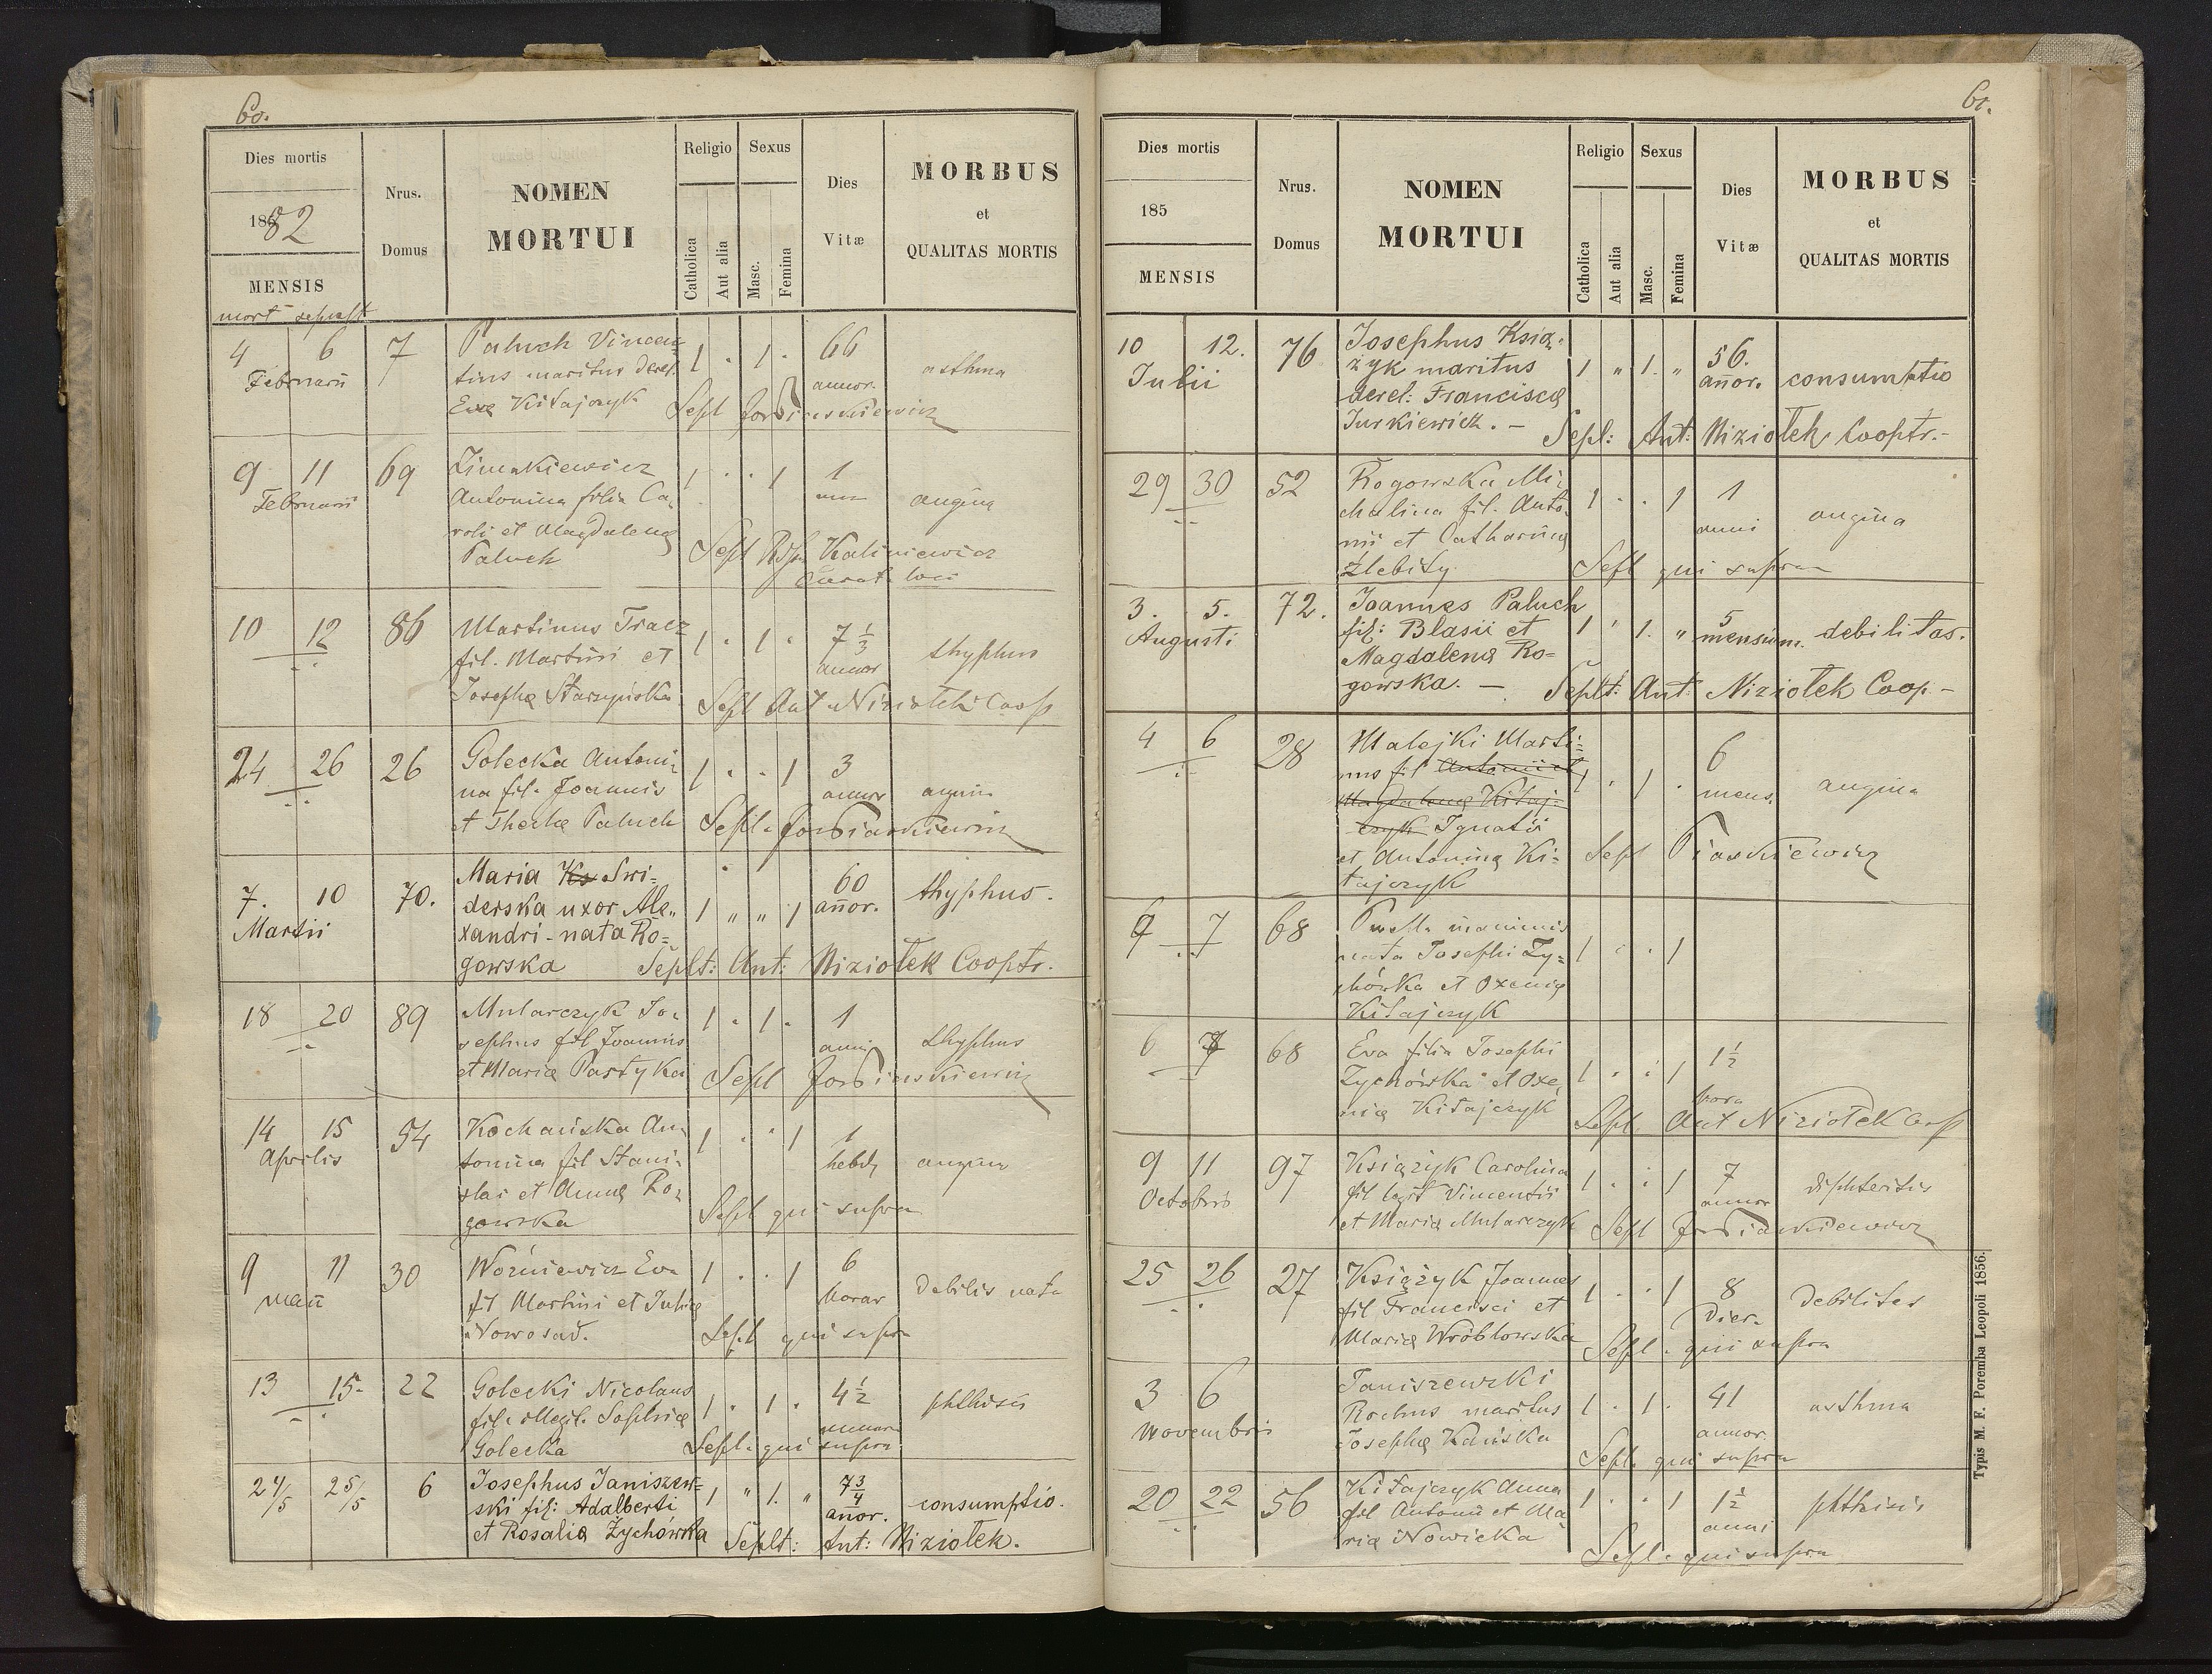 60.
Dies mortis
1882
MENSIS
mort sepult
Nrus.
Domus
NOMEN
MORTUI
Religio
Catholica
Aut alia
Sexus
Masc.
Femina
Dies
Vitæ
MORBUS
et
QUALITAS MORTIS
4 6 7 Paluch Vincen-
Februarii
tius maritus derel.
Evæ Kitajczyk
1 . 1 . 66
annor.
asthma
Sepl
9 11 69
Februarii
Antonina filia Ca-
roli et Magdalena
Paluch
1 . . 1 1
angina
Sepl Kaliniewicz
Curat. loci
10 12 86 Martinus Tracz
fil. Martini et
Josepha Starzyńska
1 . 1 . 7 1/3
annor
thyphus
Sepl Ant Niziołek Coop
24 26 26 Golecka Antoni-
na fil. Joannis
et Thecla Paluch
1 . . 1 3
annor
angina
Sepl. Jos Piaskiewicz
7. 10 70.
Martii
Maria Ks Swi-
derska uxor Ale„
xandri - nata Ro=
gowska
1 „ „ 1 60
añor.
thyphus.
Seplt: Ant: Niziołek Cooptr.
18 20 89 Mularczyk Jo-
sephus fil Joannis
et Maria Pastyka
1 . 1 . 1
anni
thyphus
Sepl Jos Piaskiewicz
14 15 54
Aprilis
Kochańska An-
tonina fil Stani-
slai et Anna Ro-
gowska
1 . . 1 1
hebd.
angina
Sepl qui supra
9 11 30
Maii
Woźniewicz Eva
fil Martini et Julia
Nowosad.
1 . . 1 6
horar
Debilis nata
Sepl qui supra
13 15 22 Golecki Nicolaus
fil. illegit. Sophia
Golecka
1 . 1 . 4 1/2
annor
phthisis
Sepl. qui supra
24/5 25/5 6 Josephus Janiszew=
ski fil: Adalberti
et Rosalia Żychówka
1 „ 1. „ 7 3/4
añor.
consumptio.
Seplt: Ant: Niziołek.
61.
Dies mortis
185
MENSIS
Nrus.
Domus
NOMEN
MORTUI
Religio
Catholica
Aut alia
Sexus
Masc.
Femina
Dies
Vitæ
MORBUS
et
QUALITAS MORTIS
10 12. 76
Julii
Josephus Ksią-
żyk maritus
derel: Francisca
Jurkiewicz. –
1 „ 1. „ 56.
añor.
consumptio
Sepl: Ant: Niziołek Cooptr.-
29 30 52 Rogowska Mi-
chalina fil. Anto-
nii et Catharina
Źlebity
1 . . 1 1
anni
angina
Sepl qui supra
3. 5. 72.
Augusti
Joannes Paluch
fil: Blasii et
Magdalena Ro=
gowska. –
1 ' 1. „ 5
mensium.
debilitas.
Seplt: Ant: Niziołek Coop -
4 6 28 Malejki Marti-
nus fil Antonii et
Magdalena Kitaj-
czyk Ignatii
et Antonina Ki-
tajczyk
1 . 1 . 6
mens.
angina
Sepl Piaskiewicz
6 7 68
nata Josephi Ży-
chówka et Oxenia
Kitajczyk
1 . . 1
6 7 68 Eva filia Josephi
Żychówka et Oxe-
nia Kitajczyk
1 . . 1 1 1/2
hora
Sepl. Ant Niziołek Coop
9 11 97
Octobris
Książyk Carolina
fil legit Vincentii
et Maria Mularczyk
1 . . 1 7
annor
diphteritis
Sepl Jos Piaskiewicz
25 26 27 Książyk Joannes
fil Francisci et
Maria Wróblowska
1 . . 1 8
Dier.
Debilitas
Sepl. qui supra
3 6
Novembris
Janiszewski
Rochus maritus
Josepha Kańska
1 . 1 . 41
annor.
asthma
Sepl. qui supra
20 22 56 Kitajczyk Anna
fil Antonii et Ma-
ria Nowicka
1 . . 1 1 1/2
anni
phthisis
Sepl. qui supra
Typis M. F. Poremba Leopoli 1856.